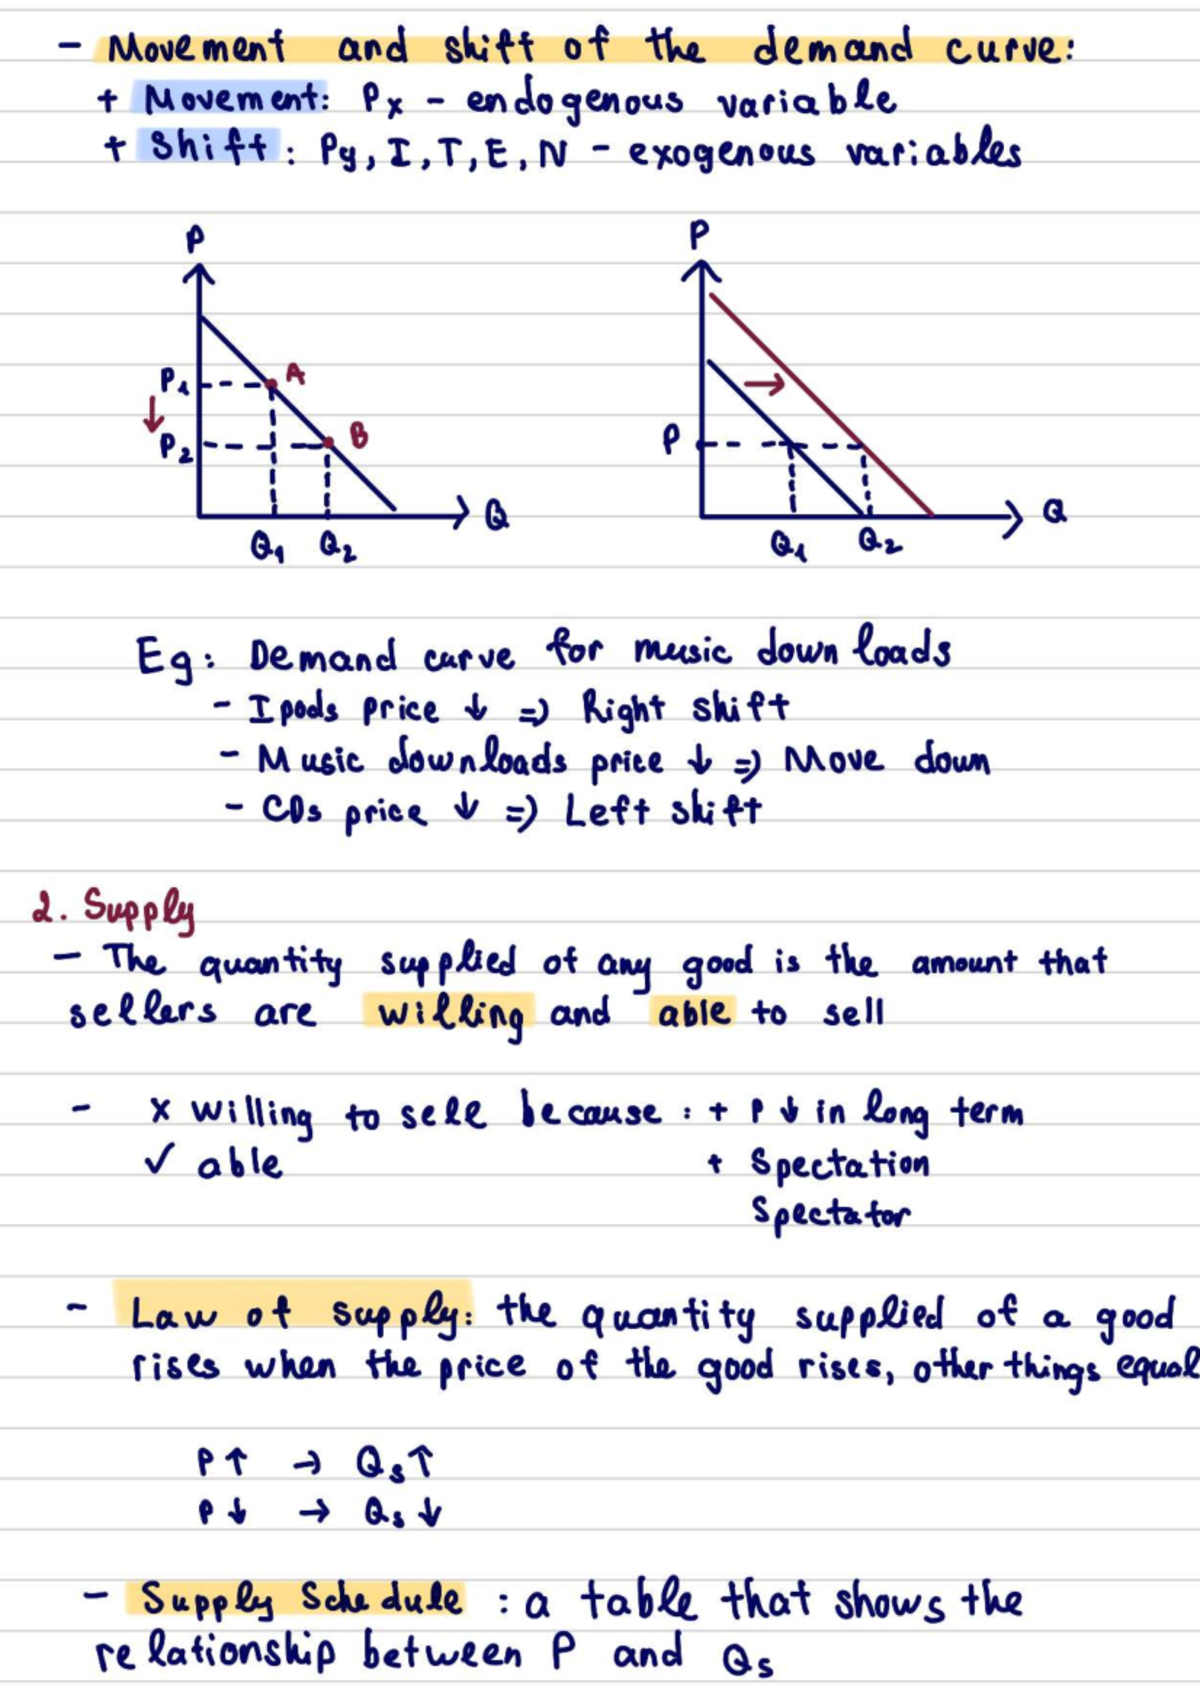 - Movement and shift of the demand curve:
+ Movement: Px - endogenous variable
+ Shift: Py, I, T, E, N - exogenous variables
P
P
P1
A
P2
B
P
Q
Q
Q1 Q2
Q1 Q2
Eg: Demand curve for music downloads
- Ipods price ↓ => Right shift
- Music downloads price ↓ => Move down
- CDs price ↓ => Left shift
2. Supply
- The quantity supplied of any good is the amount that
sellers are willing and able to sell
- x willing to sell because: + P ↓ in long term
✓ able + Spectation
Spectator
- Law of supply: the quantity supplied of a good
rises when the price of the good rises, other things equal
P ↑ → Qs ↑
P ↓ → Qs ↓
- Supply Schedule : a table that shows the
relationship between P and Qs